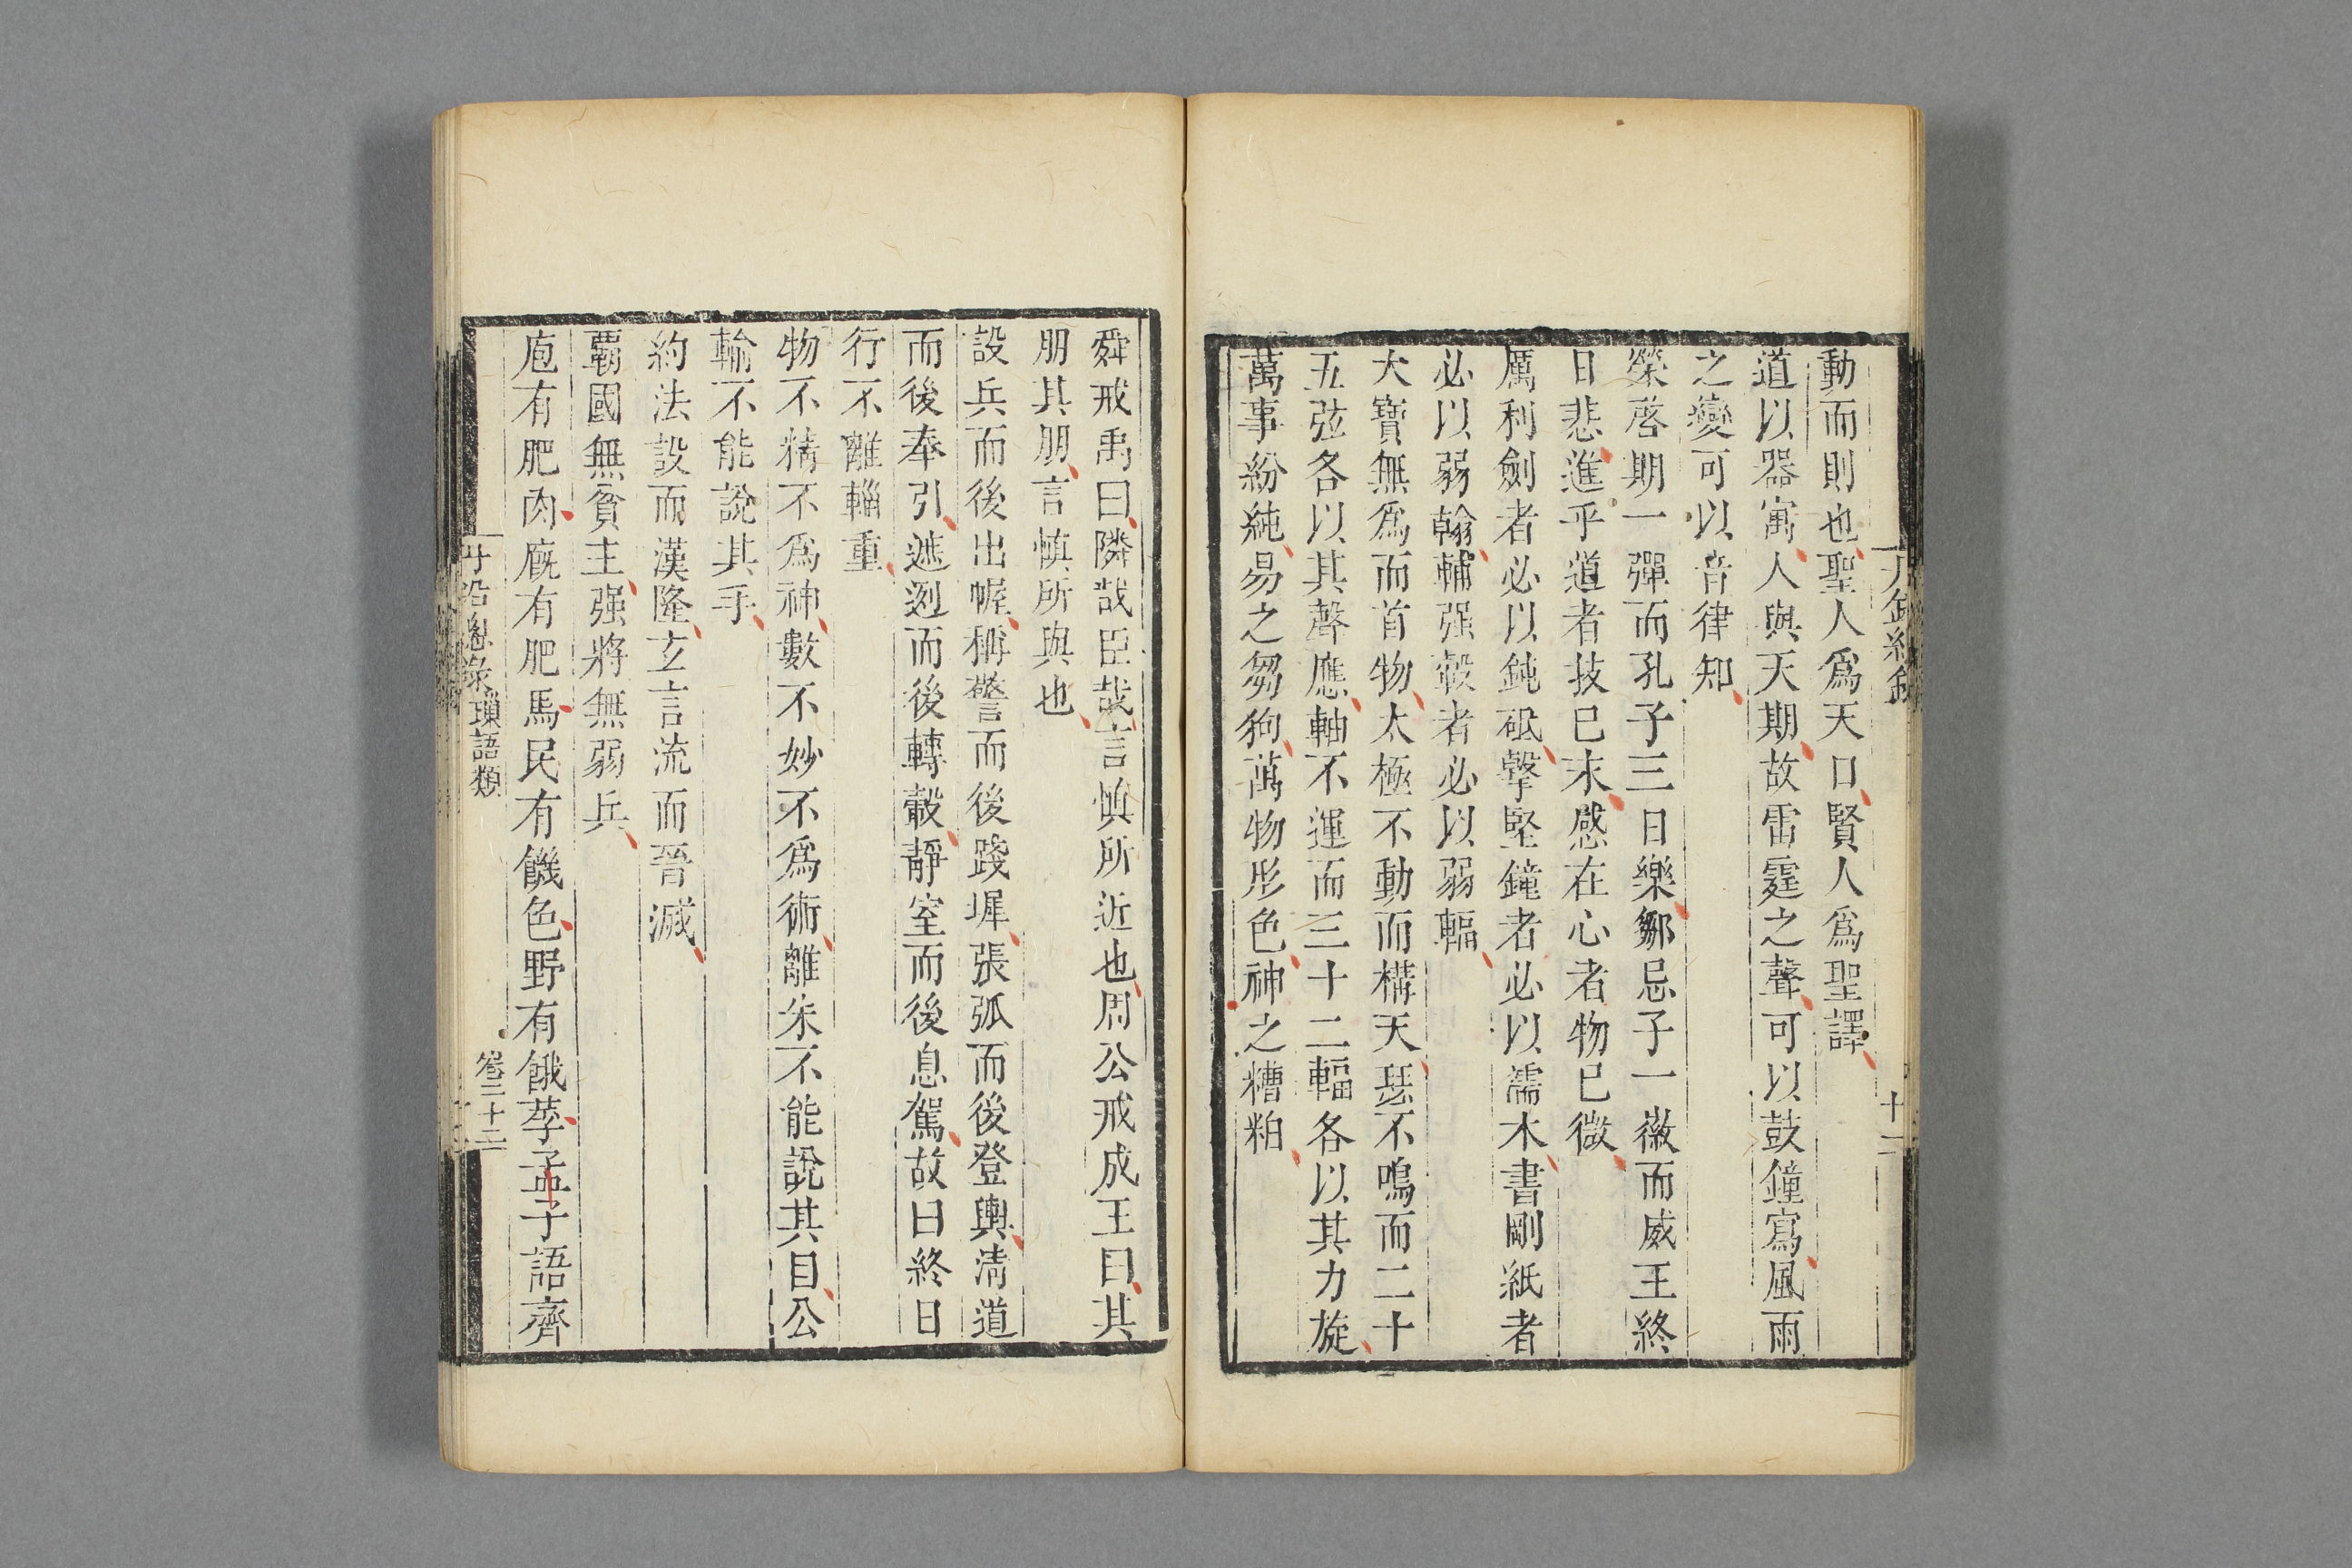 動而則也聖人爲天口賢人爲聖譯
道以器寓人與天期故雷霆之聲可以鼓鐘寫風雨
之變可以音律知
榮啓期一彈而孔子三日樂鄒忌子一徽而威王終
日悲進乎道者技已末感在心者物已微
厲利劍者必以鈍砥擊堅鐘者必以濡木書剛紙者
必以弱翰輔强轂者必以弱輻
大寶無爲而首物太極不動而構天瑟不鳴而二十
五弦各以其聲應軸不運而三十二輻各以其力旋
萬事紛純易之芻狗萬物形色神之糟粕
舜戒禹曰隣哉臣哉言慎所近也周公戒成王曰其
朋其朋言慎所與也
設兵而後出幄稱警而後踐墀張弧而後登輿淸道
而後奉引遮迾而後轉轂靜室而後息駕故曰終日
行不離輜重
物不精不爲神數不妙不爲術離朱不能說其目公
輸不能說其手
約法設而漢隆玄言流而晉滅
霸國無貧主强將無弱兵
庖有肥肉廐有肥馬民有饑色野有餓莩孟子語齊
丹鉛總錄 瑣語類 卷二十二